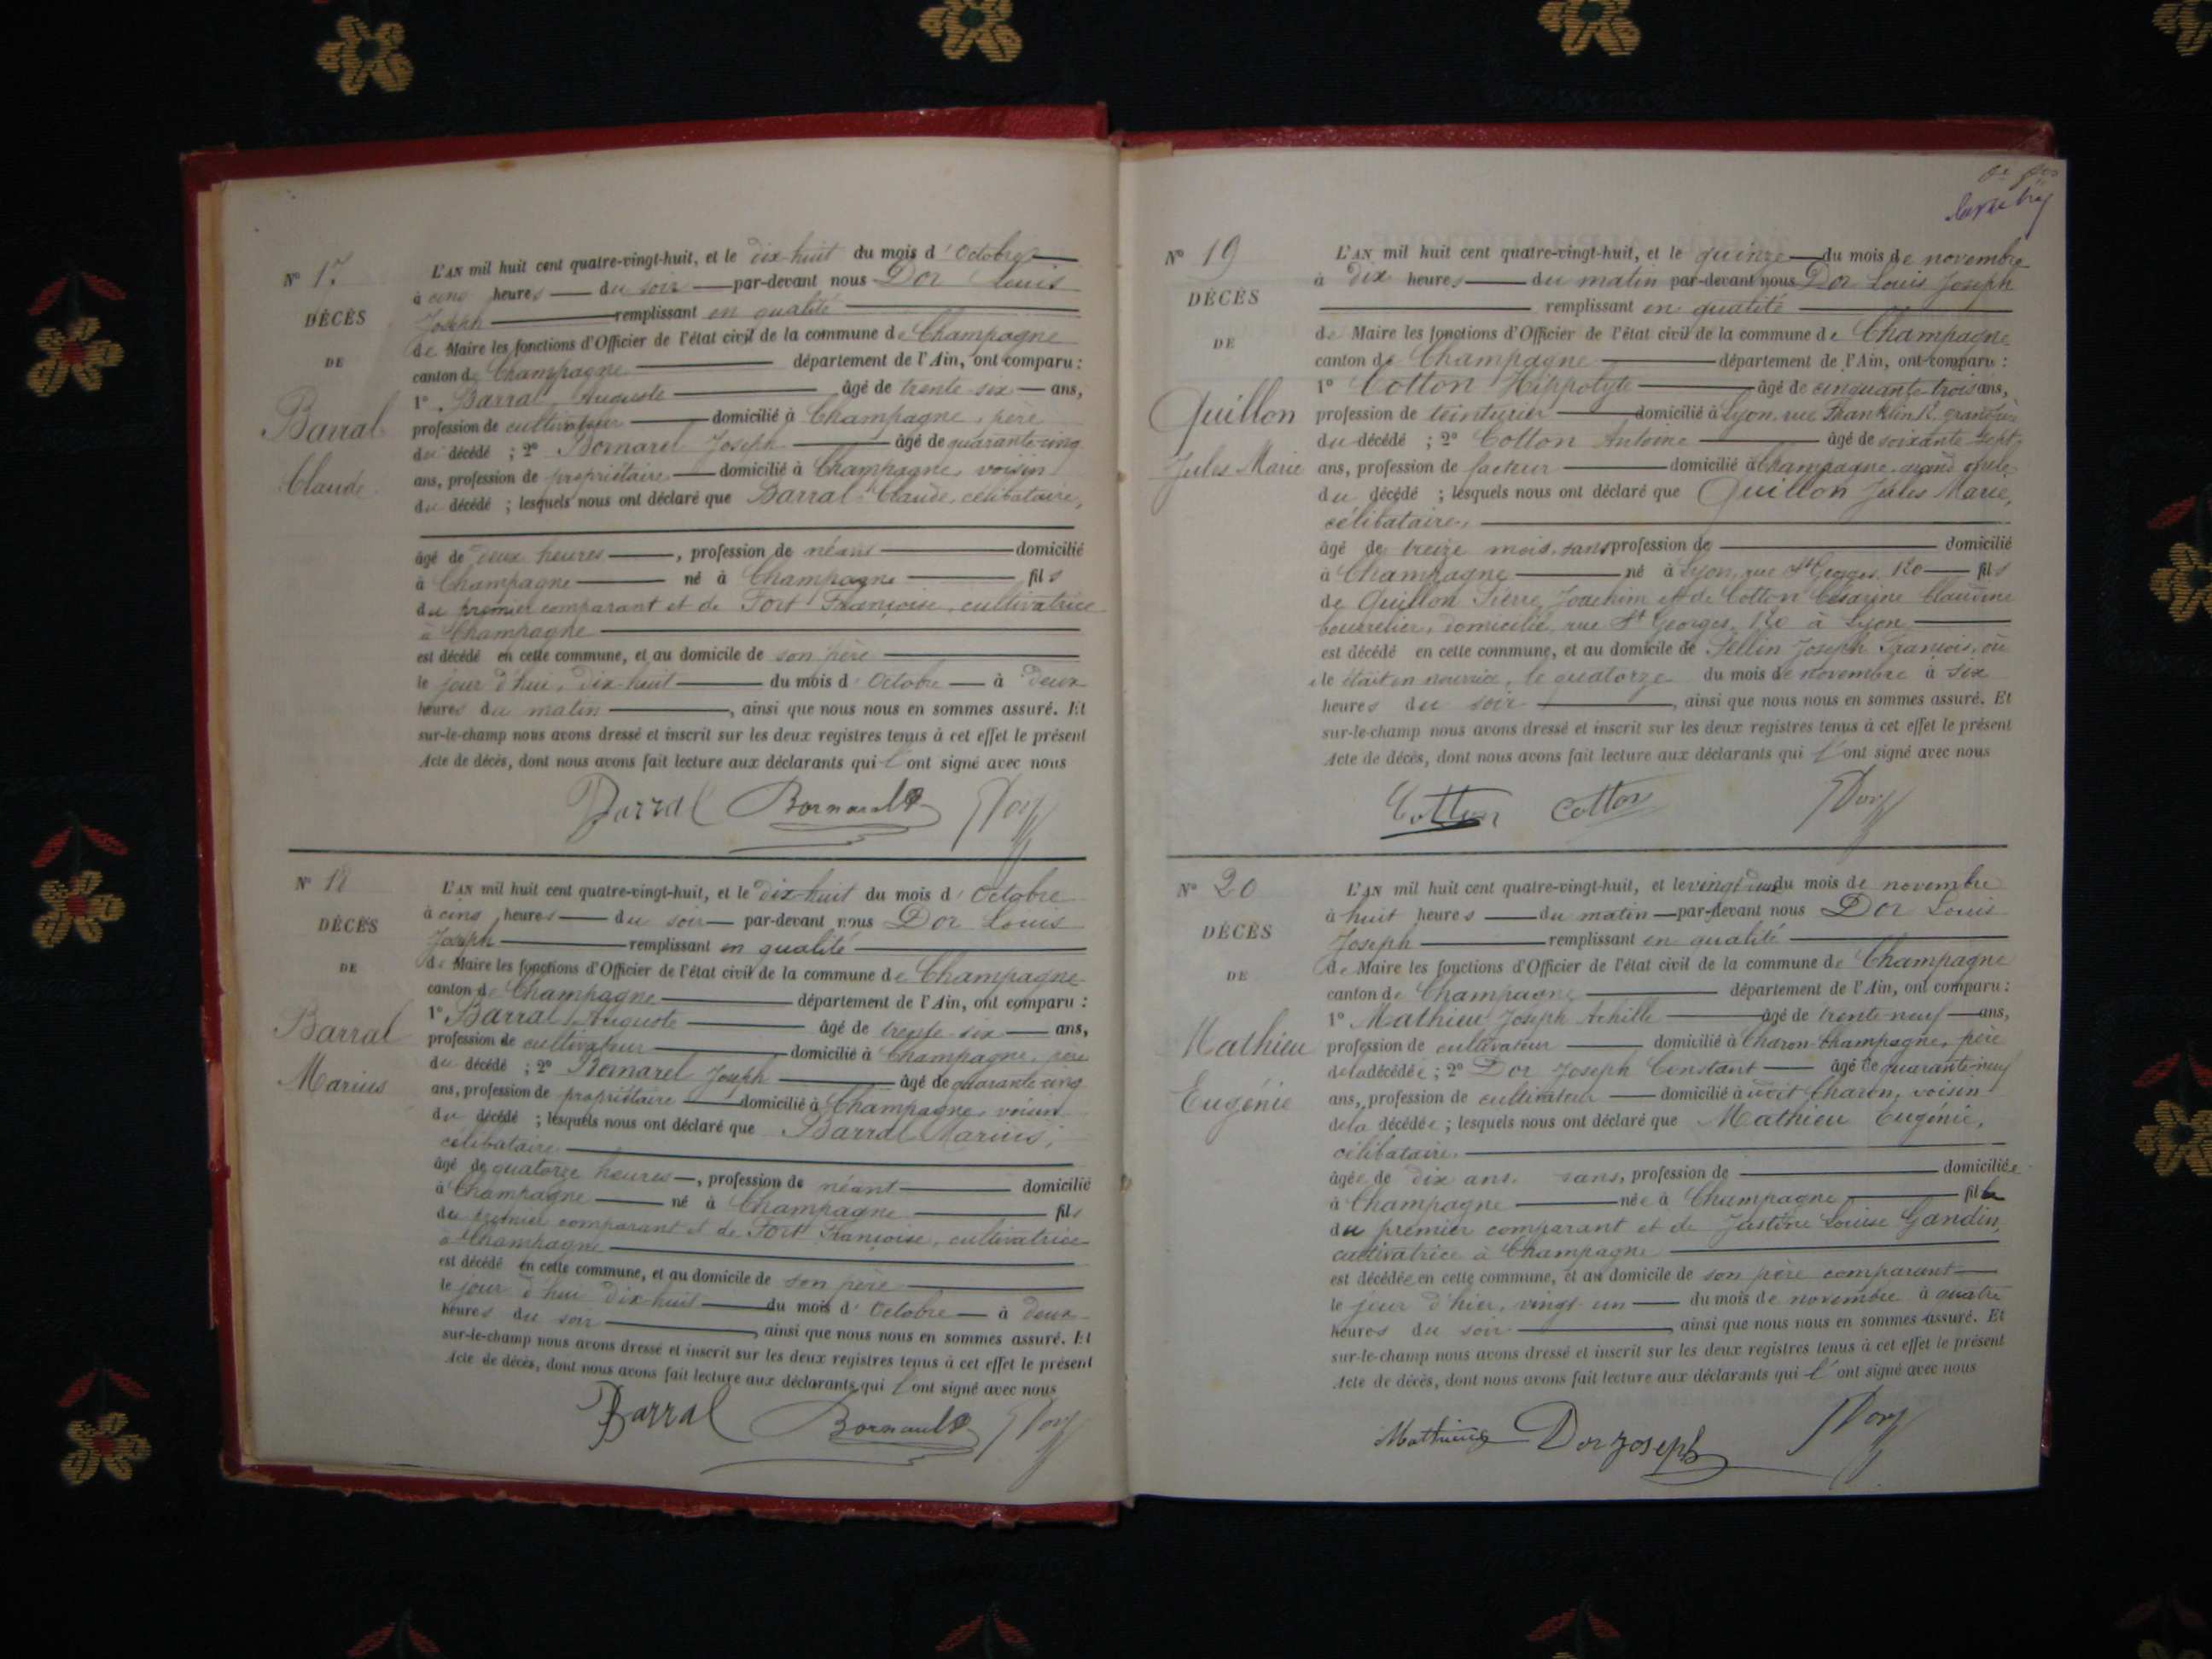 N° 17
DÉCÈS
DE
Barral
Claude
L'AN mil huit cent quatre-vingt-huit, et le dix-huit du mois d'Octobre
à cinq heures du soir par-devant nous Dor Louis
Joseph remplissant en qualité
de Maire les fonctions d'Officier de l'état civil de la commune de Champagne
canton de Champagne département de l'Ain, ont comparu :
1° Barral Auguste âgé de trente six ans,
profession de cultivateur domicilié à Champagne, père
du décédé ; 2° Bornarel Joseph âgé de quarante-cinq
ans, profession de propriétaire domicilié à Champagne, voisin
du décédé ; lesquels nous ont déclaré que Barral Claude, célibataire,
âgé de deux heures, profession de néant domicilié
à Champagne né à Champagne fils
du premier comparant et de Fort Françoise, cultivatrice
à Champagne
est décédé en cette commune, et au domicile de son père
le jour d'hui, dix-huit du mois d'Octobre à deux
heures du matin, ainsi que nous nous en sommes assuré. Et
sur-le-champ nous avons dressé et inscrit sur les deux registres tenus à cet effet le présent
Acte de décès, dont nous avons fait lecture aux déclarants qui l'ont signé avec nous
Barral Bornarel Dor
N° 18
DÉCÈS
DE
Barral
Marius
L'AN mil huit cent quatre-vingt-huit, et le dix-huit du mois d'Octobre
à cinq heures du soir par-devant nous Dor Louis
Joseph remplissant en qualité
de Maire les fonctions d'Officier de l'état civil de la commune de Champagne
canton de Champagne département de l'Ain, ont comparu :
1° Barral Auguste âgé de trente-six ans,
profession de cultivateur domicilié à Champagne, père
du décédé ; 2° Bornarel Joseph âgé de quarante cinq
ans, profession de propriétaire domicilié à Champagne, voisin
du décédé ; lesquels nous ont déclaré que Barral Marius,
célibataire
âgé de quatorze heures, profession de néant domicilié
à Champagne né à Champagne fils
du premier comparant et de Fort Françoise, cultivatrice
à Champagne
est décédé en cette commune, et au domicile de son père
le jour d'hui dix-huit du mois d'Octobre à deux
heures du soir, ainsi que nous nous en sommes assuré. Et
sur-le-champ nous avons dressé et inscrit sur les deux registres tenus à cet effet le présent
Acte de décès, dont nous avons fait lecture aux déclarants qui l'ont signé avec nous
Barral Bornarel Dor
N° 19
DÉCÈS
DE
Quillon
Jules Marie
L'AN mil huit cent quatre-vingt-huit, et le quinze du mois de novembre
à dix heures du matin par-devant nous Dor Louis Joseph
remplissant en qualité
de Maire les fonctions d'Officier de l'état civil de la commune de Champagne
canton de Champagne département de l'Ain, ont comparu :
1° Cotton Hippolyte âgé de cinquante-trois ans,
profession de teinturier domicilié à Lyon, rue Franklin
du décédé ; 2° Cotton Antoine âgé de soixante-sept
ans, profession de facteur domicilié à Champagne, grand oncle
du décédé ; lesquels nous ont déclaré que Quillon Jules Marie,
célibataire,
âgé de treize mois, sans profession de domicilié
à Champagne né à Lyon, rue St Georges, 120 fils
de Quillon Pierre Joachim et de Cotton Césarine Claudine
bourrelier, domicilié, rue St Georges, 120 à Lyon
est décédé en cette commune, et au domicile de Pellin Joseph François, où
il était en nourrice, le quatorze du mois de novembre à six
heures du soir, ainsi que nous nous en sommes assuré. Et
sur-le-champ nous avons dressé et inscrit sur les deux registres tenus à cet effet le présent
Acte de décès, dont nous avons fait lecture aux déclarants qui l'ont signé avec nous
Cotton Cotton Dor
N° 20
DÉCÈS
DE
Mathieu
Eugénie
L'AN mil huit cent quatre-vingt-huit, et le vingt deux du mois de novembre
à huit heures du matin par-devant nous Dor Louis
Joseph remplissant en qualité
de Maire les fonctions d'Officier de l'état civil de la commune de Champagne
canton de Champagne département de l'Ain, ont comparu :
1° Mathieu Joseph Achille âgé de trente-neuf ans,
profession de cultivateur domicilié à Charon-Champagne, père
de la décédée ; 2° Dor Joseph Constant âgé de quarante-neuf
ans, profession de cultivateur domicilié à Charon, voisin
de la décédée ; lesquels nous ont déclaré que Mathieu Eugénie,
célibataire.
âgée de dix ans, sans, profession de domiciliée
à Champagne née à Champagne fille
du premier comparant et de Justine Louise Gandin,
cultivatrice à Champagne
est décédée en cette commune, et au domicile de son père comparant
le jour d'hier, vingt-un du mois de novembre à quatre
heures du soir, ainsi que nous nous en sommes assuré. Et
sur-le-champ nous avons dressé et inscrit sur les deux registres tenus à cet effet le présent
Acte de décès, dont nous avons fait lecture aux déclarants qui l'ont signé avec nous
Mathieu Dor Joseph Dor